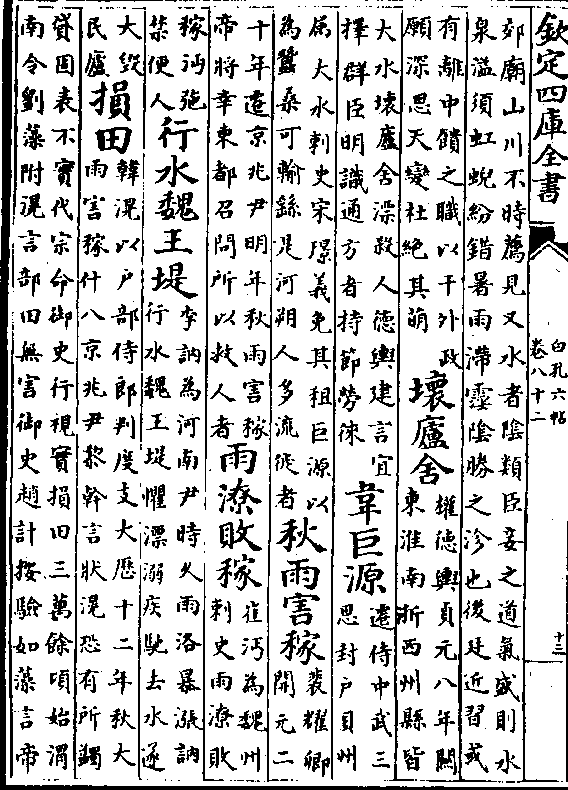 欽定四庫全書
白孔六帖
卷八十二
十三
郊廟山川不時薦見又水者陰類臣妾之道氣盛則水
泉溢須虹蜺紛錯暑雨滯霪陰勝之沴也後廷近習或
有離中饋之職以干外政
願深思天變杜絕其萌
壞廬舍
權德輿貞元八年關
東淮南浙西州縣皆
大水壞廬舍漂殺人德輿建言宜
擇群臣明識通方者持節勞徠
韋巨源
遷侍中武三
思封戶貝州
屬大水刺史宋璟義免其租巨源以
為蠶桑可輸繇是河朔人多流徙者
秋雨害稼
裴耀卿
開元二
十年遷京兆尹明年秋雨害稼
帝將幸東都召問所以救人者
雨潦敗稼
崔沔為魏州
刺史雨潦敗
稼沔弛
禁便人
行水魏王堤
李訥為河南尹時久雨洛暴漲訥
行水魏王堤懼漂溺疾馳去水遂
大縱
民廬
損田
韓滉以戶部侍郎判度支大歷十二年秋大
雨害稼什八京兆尹黎幹言狀滉恐有所蠲
貸固表不實代宗命御史行視實損田三萬餘頃始渭
南令劉藻附滉言部田無害御史趙計按驗如藻言帝